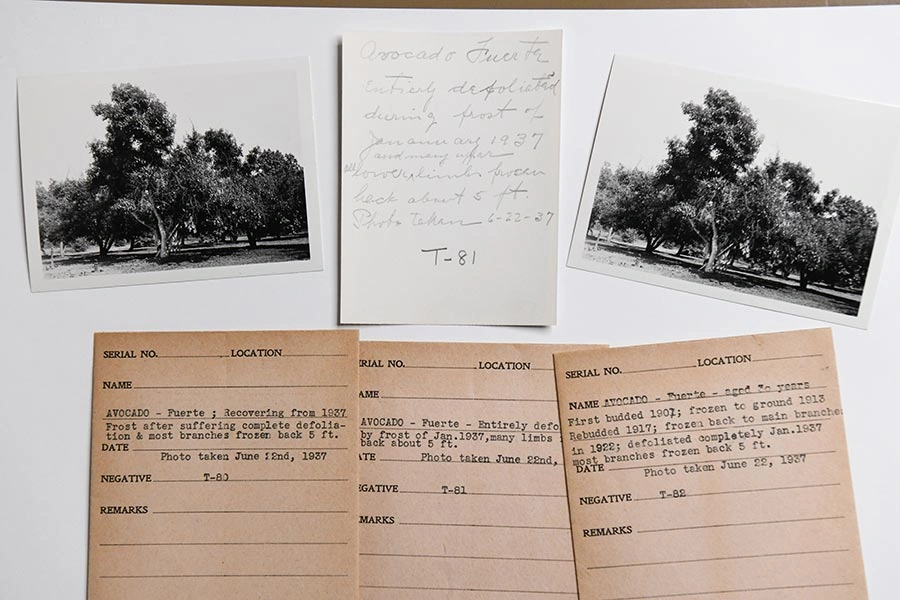 Avocado Fuerte
Entirely defoliated
during frost of
January 1937
and many upper
lower limbs frozen
back about 5 ft.
Photo taken 6-22-37
T-81
SERIAL NO. LOCATION
NAME
AVOCADO - Fuerte ; Recovering from 1937
Frost after suffering complete defolia-
tion & most branches frozen back 5 ft.
DATE
Photo taken June 22nd, 1937
NEGATIVE T-80
REMARKS
RIAL NO. LOCATION
AME
AVOCADO - Fuerte - Entirely defo
by frost of Jan.1937,many limbs
back about 5 ft.
ATE Photo taken June 22nd,
EGATIVE T-81
EMARKS
SERIAL NO. LOCATION
NAME AVOCADO - Fuerte - aged 30 years
First budded 1907; frozen to ground 1913
Rebudded 1917; frozen back to main branches
in 1922; defoliated completely Jan.1937
most branches frozen back 5 ft.
DATE Photo taken June 22, 1937
NEGATIVE T-82
REMARKS